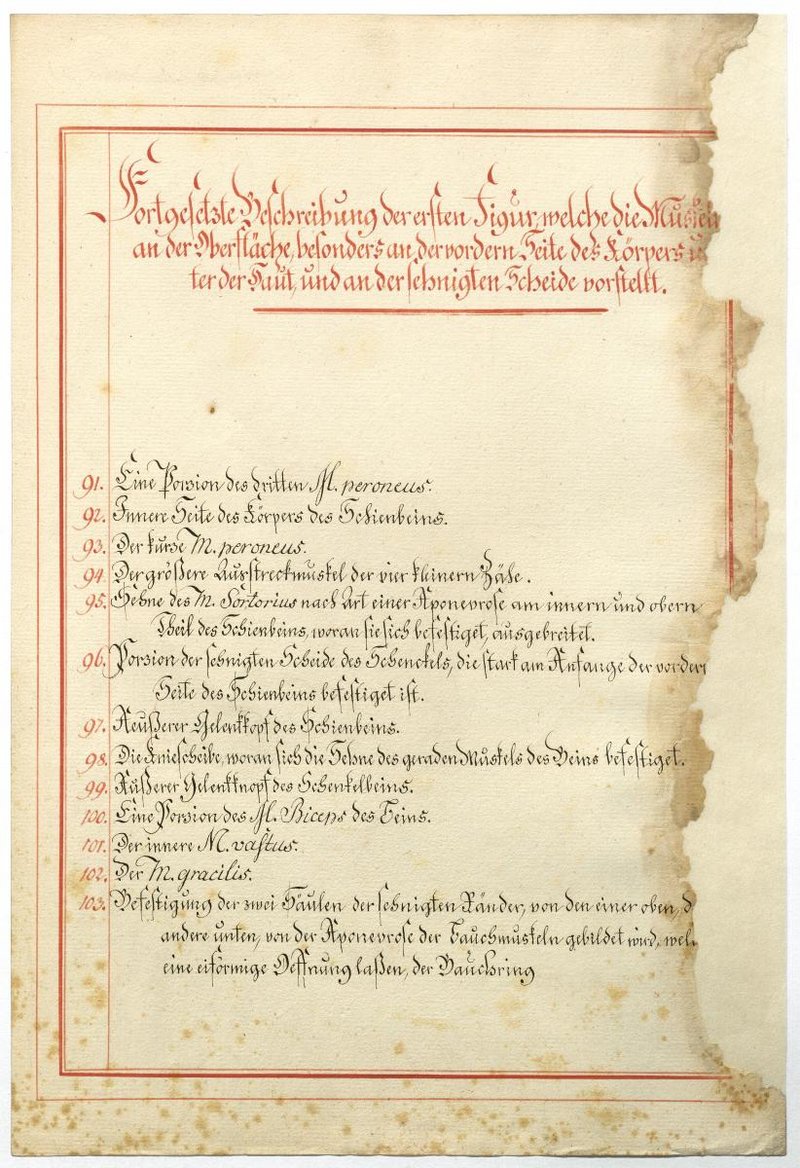 Fortgesetzte Beschreibung der ersten Figur, welche die Muskeln
an der Oberfläche, besonders an der vordern Seite des Körpers un
ter der Haut, und an der sehnigten Scheide vorstellt.
91. Eine Porzion des dritten M. peroneus.
92. Innere Seite des Körpers des Schienbeins.
93. Der kurze M. peroneus.
94. Der größere Ausstreckmuskel der vier kleinern Zähe.
95. Sehne des M. Sortorius nach Art einer Aponevrose am innern und obern
Theil des Schienbeins, woran sie sich befestiget, ausgebreitet.
96. Porzion der sehnigten Scheide des Schenckels, die stark am Anfange der vordern
Seite des Schienbeins befestiget ist.
97. Aeußerer Gelenkkopf des Schienbeins.
98. Die Kniescheibe, woran sich die Sehne des geraden Muskels des Beins befestiget.
99. Äußerer Gelenkknopf des Schenkelbeins.
100. Eine Porzion des M. Biceps des Beins.
101. Der innere M. vastus.
102. Der M. gracilis.
103. Befestigung der zwei Säulen der sehnigten Ränder, von den einer oben, d
andere unten, von der Aponevrose der Bauchmuskeln gebildet wird, welch
eine eiförmige Oeffnung laßen, der Bauchring